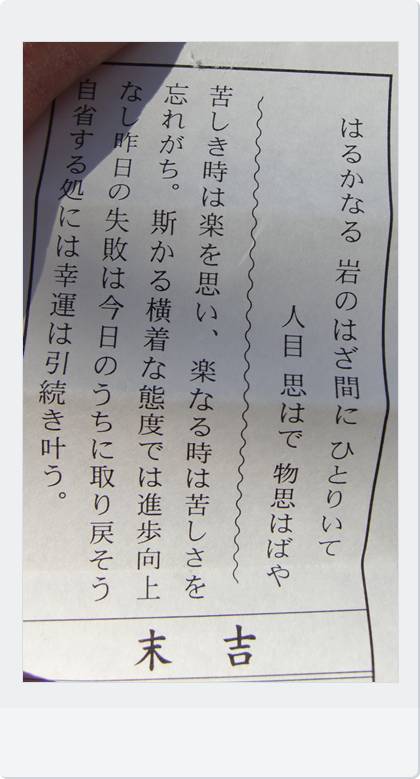 はるかなる 岩のはざ間に ひとりいて
人目 思はで 物思はばや
苦しき時は楽を思い、楽なる時は苦しさを
忘れがち。斯かる横着な態度では進歩向上
なし昨日の失敗は今日のうちに取り戻そう
自省する処には幸運は引続き叶う。
末吉